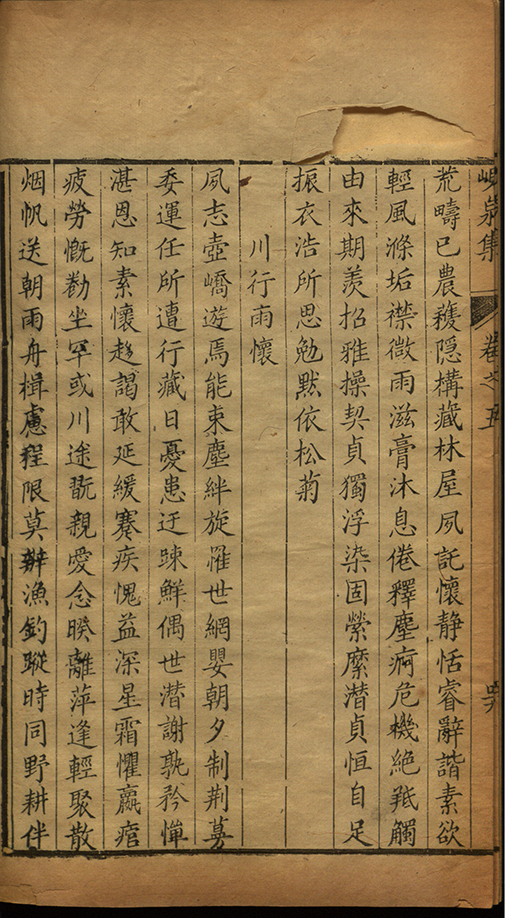 峴泉集 卷之五
荒疇已農穫隠構藏林屋夙託懷静恬睿辭諧素欲
輕風滌垢襟微雨滋膏沐息倦釋塵痾危機絶羝觸
由來期羡招雅操契貞獨浮染固縈縻潛貞恒自足
振衣浩所思勉黙依松菊
川行雨懷
夙志壺嶠遊焉能束塵絆旋罹世網嬰朝夕制荆蓦
委運任所遭行藏日憂患迂踈鮮偶世潜謝孰矜憚
湛恩知素懷趍謁敢延緩蹇疾愧益深星霜懼羸痯
疲勞慨勸坐罕或川途翫親愛念暌離萍逢輕聚散
烟帆送朝雨舟楫慮程限莫辦漁釣蹤時同野耕伴